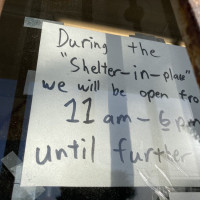 During the
"Shelter-in-place"
we will be open fro
11 am - 6 pm
until further